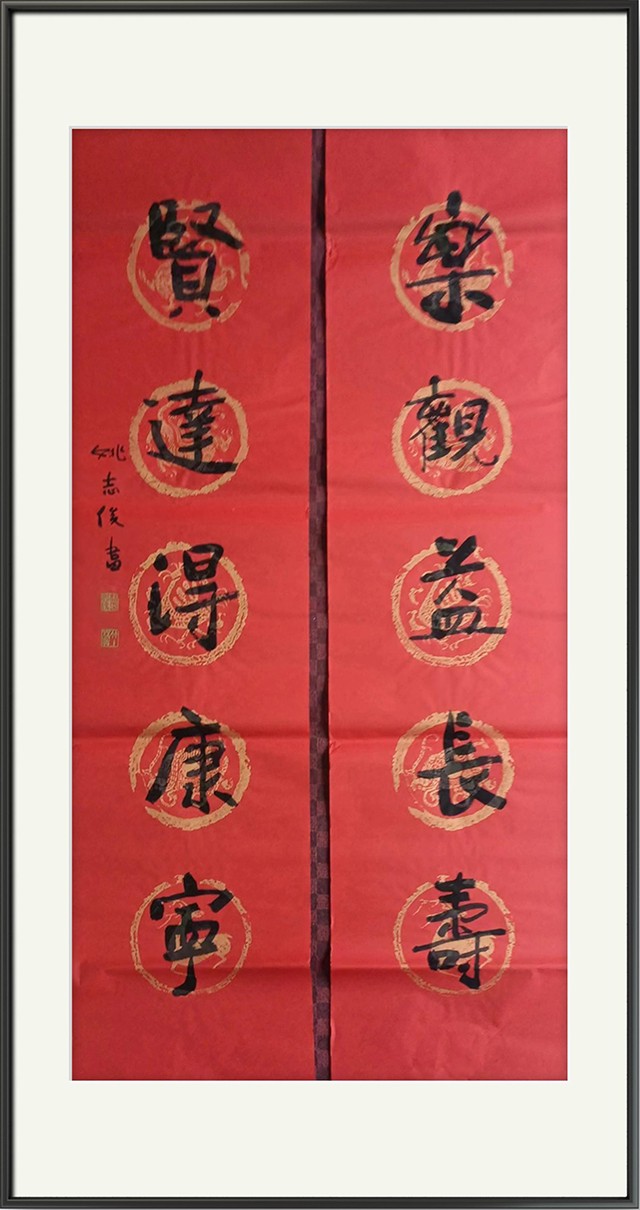 樂觀益長壽
賢達得康寧
姚志俊書